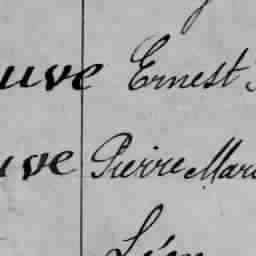 uve Ernest
uve Pierre Mari
Léon